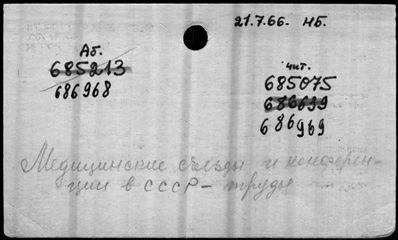 21.7.66. НБ.
Аб.
685213
686968
чит.
685075
686699
686969
Медицинские съезды и конферен-
ции в СССР - труды